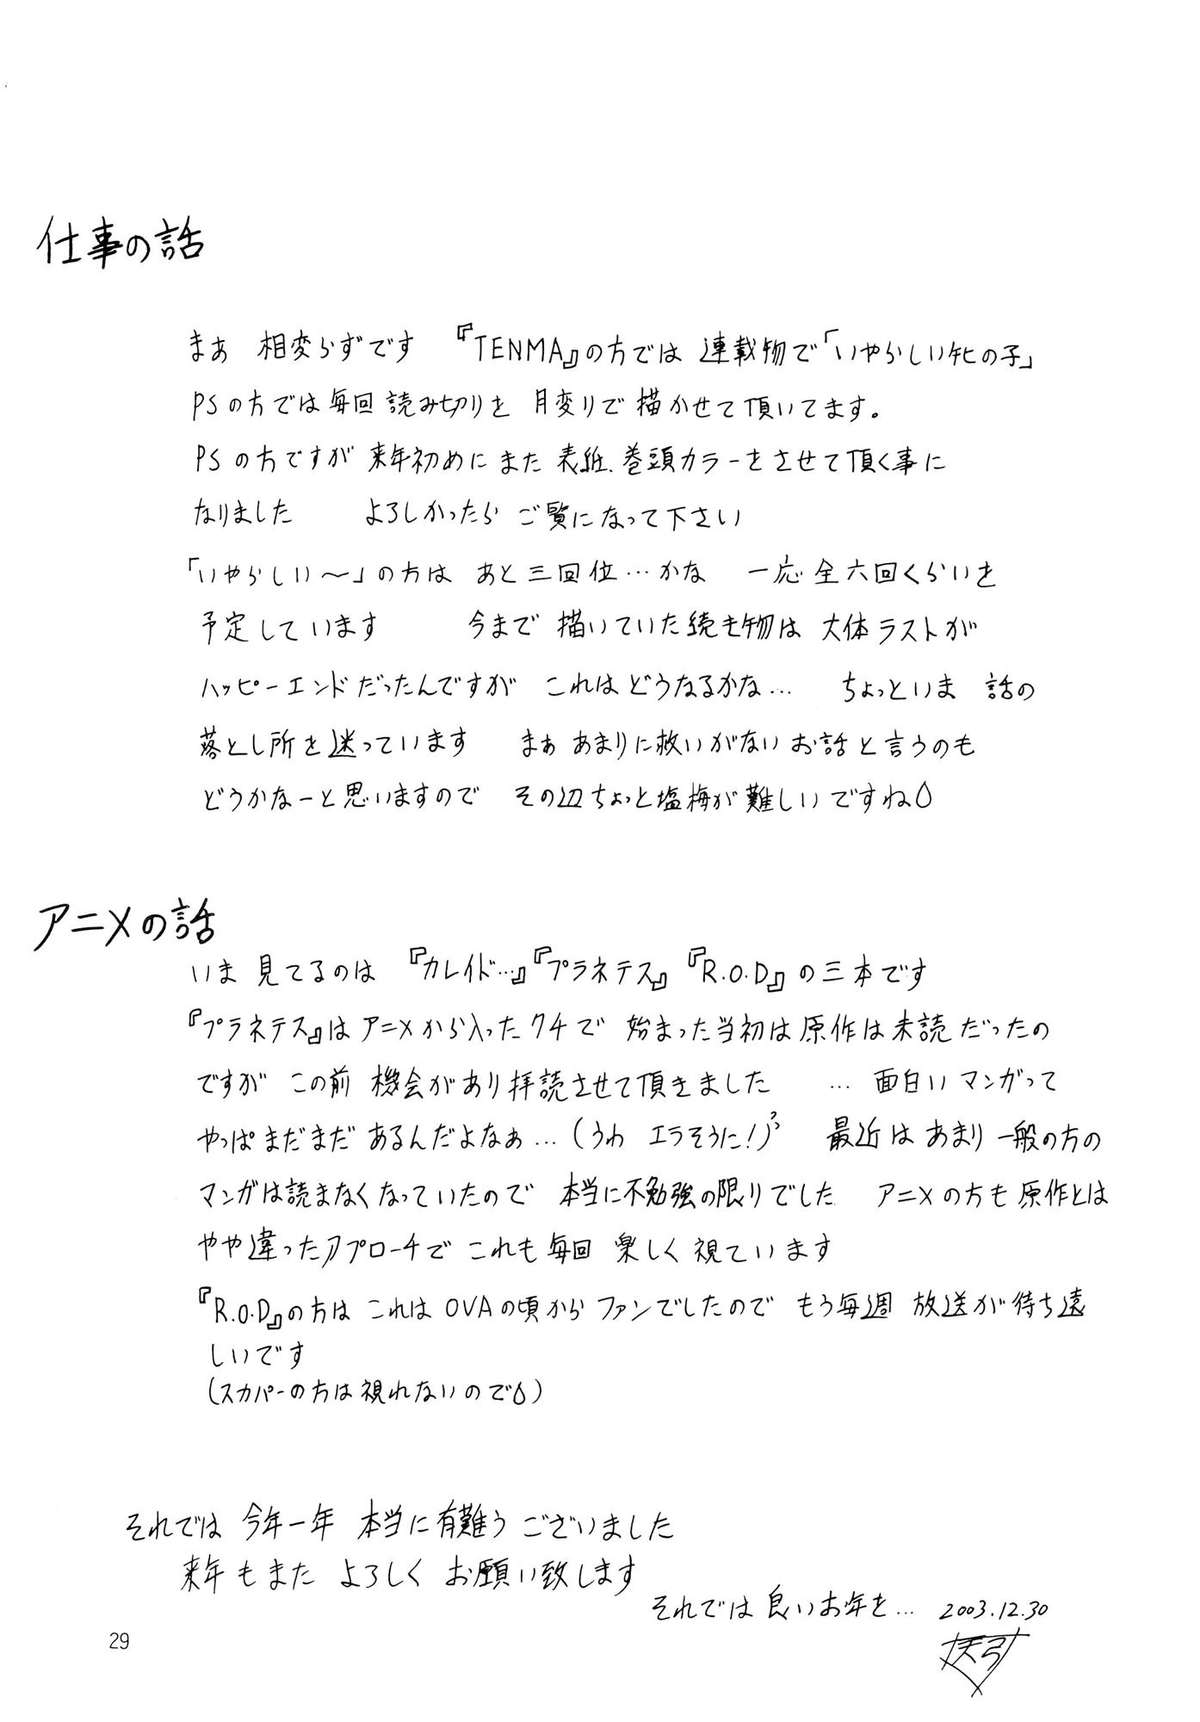 仕事の話
まぁ 相変らずです 『TENMA』の方では 連載物で「いやらしい牝の子」
PSの方では毎回 読み切りを 月変りで描かせて頂いてます。
PSの方ですが 来年初めにまた 表紙.巻頭カラーをさせて頂く事に
なりました よろしかったら ご覧になって下さい
「いやらしい〜」の方は あと三回位…かな 一応全六回くらいを
予定しています 今まで描いていた続き物は 大体ラストが
ハッピーエンドだったんですが これはどうなるかな… ちょっといま 話の
落とし所を迷っています まぁ あまりに救いがないお話と言うのも
どうかなーと思いますので その辺ちょっと塩梅が難しいですね
アニメの話
いま 見てるのは 『カレイド…』『プラネテス』『R.O.D』の三本です
『プラネテス』はアニメから入ったクチで 始まった当初は原作は未読だったの
ですが この前 機会があり拝読させて頂きました … 面白いマンガって
やっぱまだまだ あるんだよなぁ…(うわ エラそうに!) 最近は あまり一般の方の
マンガは読まなくなっていたので 本当に不勉強の限りでした アニメの方も原作とは
やや違ったアプローチで これも毎回 楽しく視ています
『R.O.D』の方は これは OVAの頃から ファンでしたので もう毎週 放送が待ち遠
しいです
(スカパーの方は視れないので)
それでは 今年一年 本当に有難う ございました
来年もまた よろしく お願い致します
それでは良いお年を… 2003.12.30
29